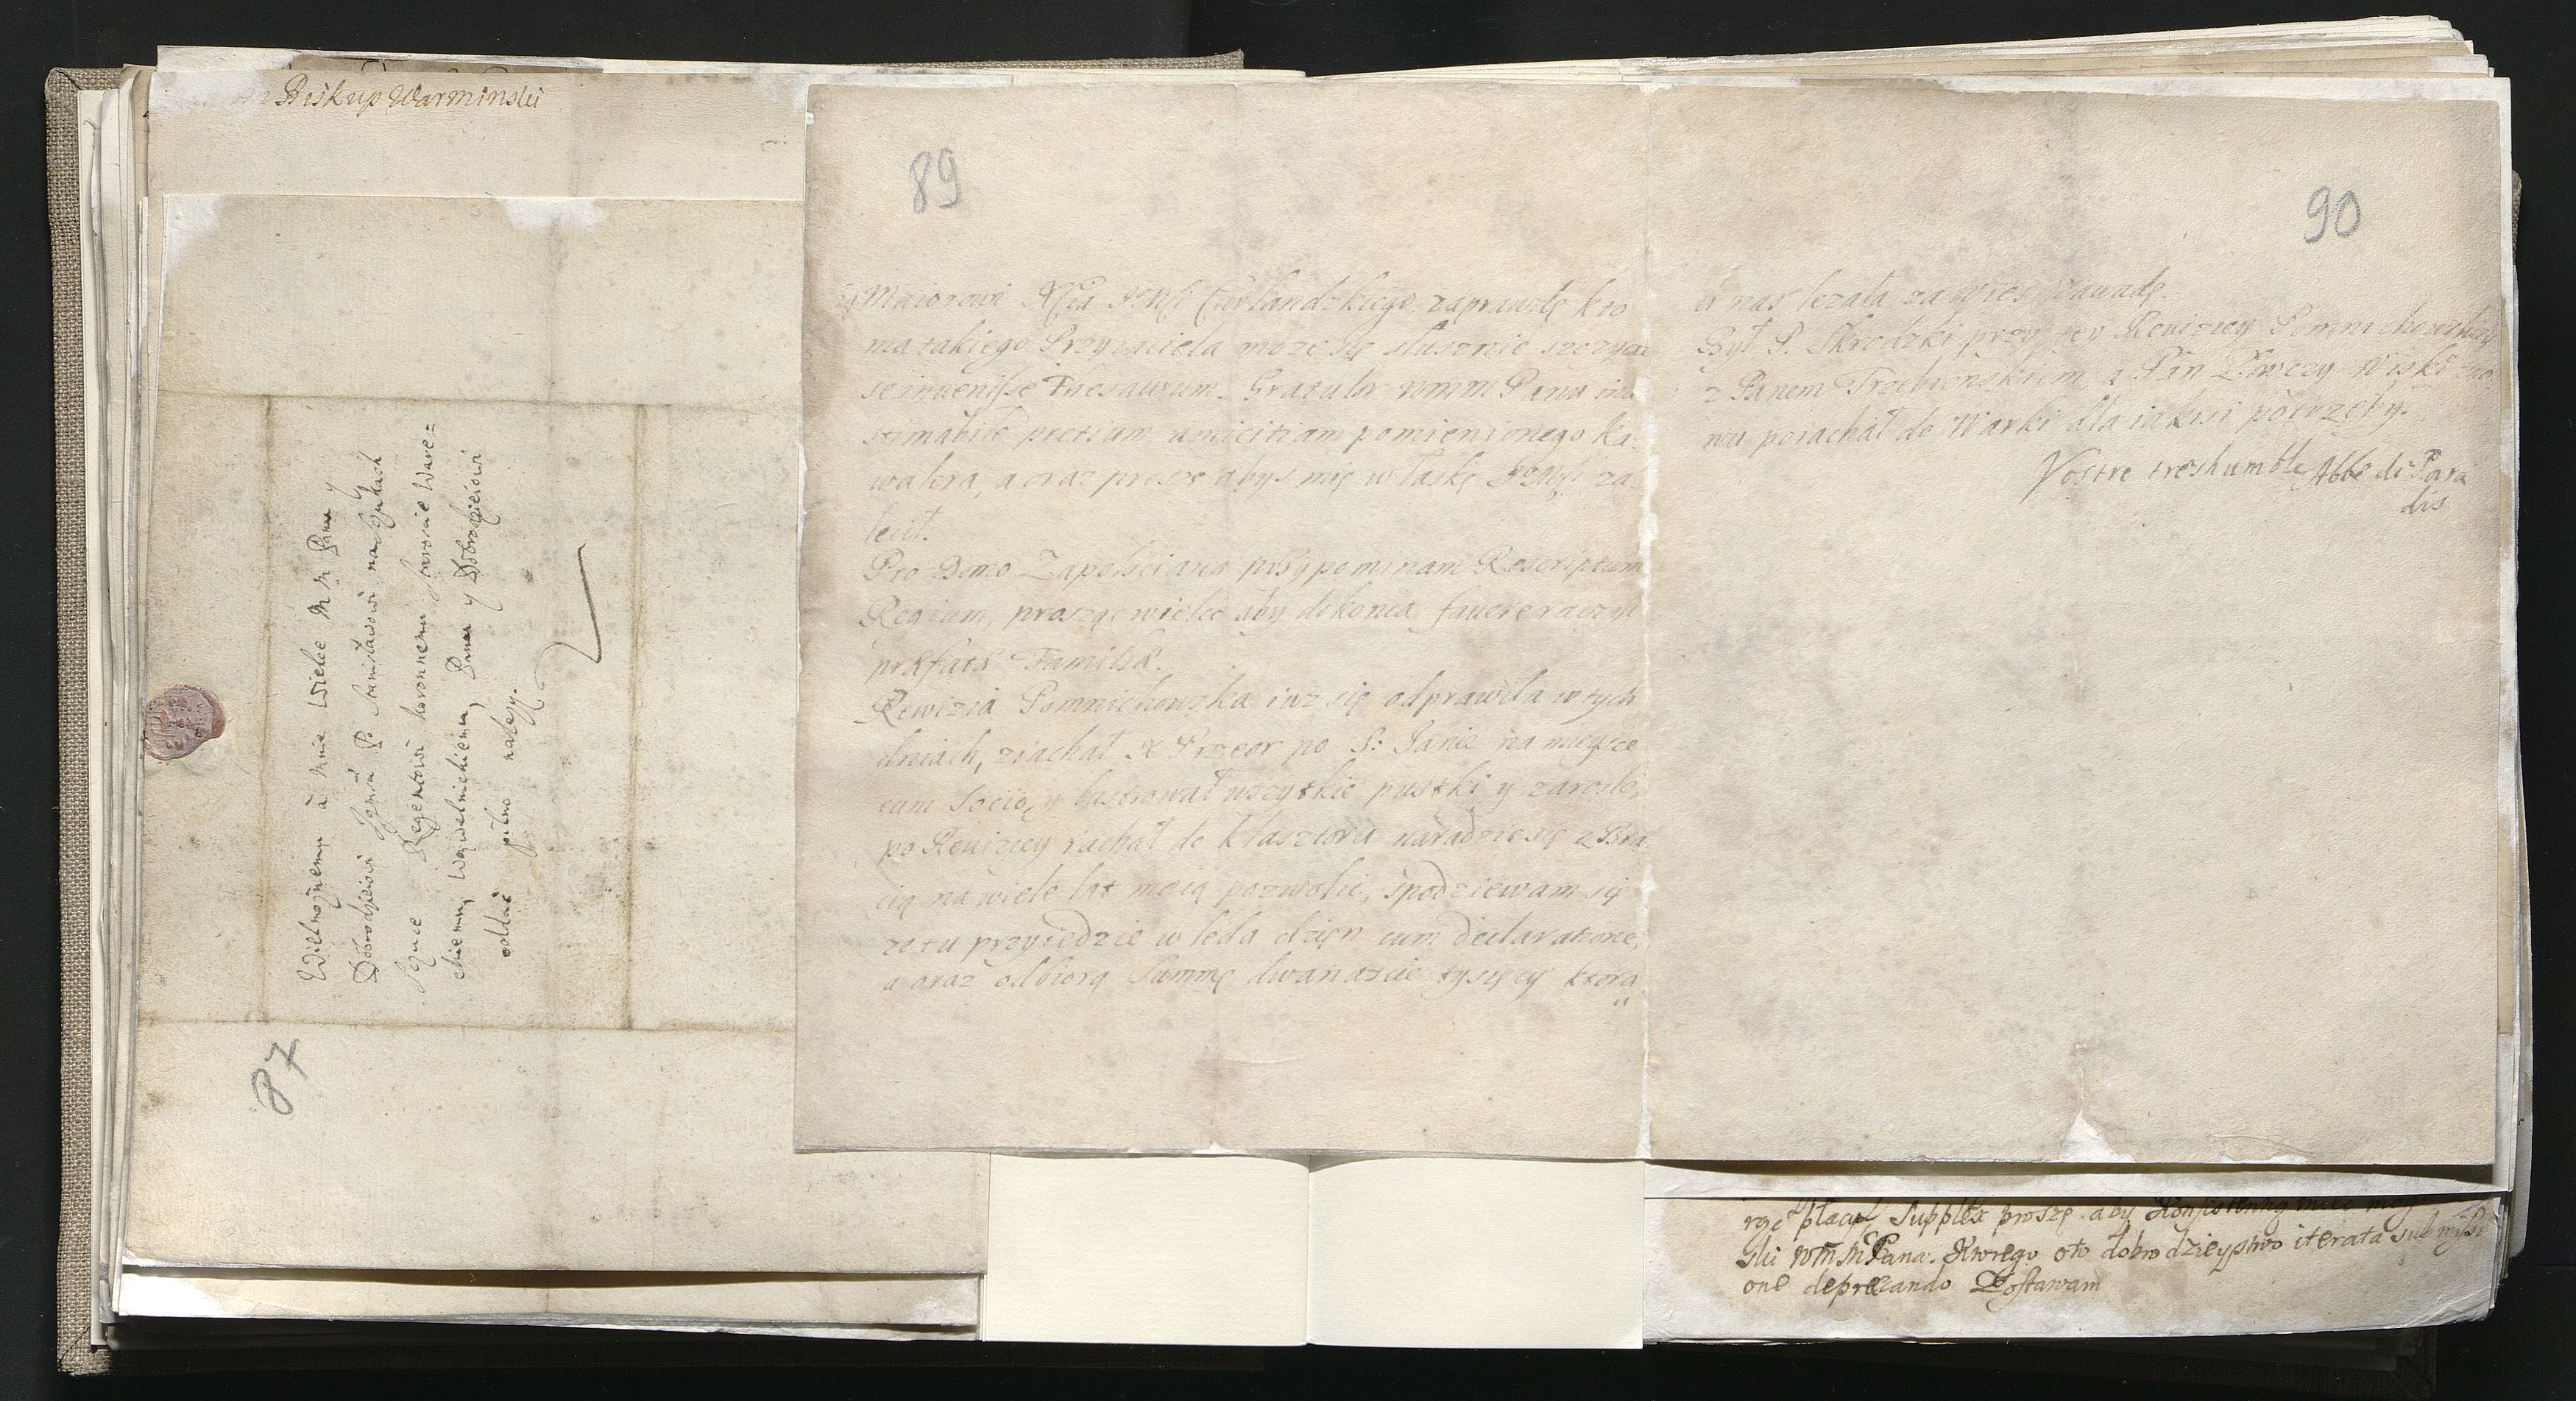 Biskup Warminski
Wielmożnemu à mnie Wielce M Panu y
Dobrodzieiowi Jegmci P. Stanisławowi na
Regentowi koronnemu, Staroscie Ware=
ckiemu, Panu y Dobrodzieiowi
oddać pilno należy.
87
89
Maiorowi Xcia JEMści Curlandzkiego zaprawdę kto
ma takiego Przyiaciela może się słusznie szczycić
se invenisse Thesaurum. Gratulor WMM Pana inae
stimabile pretium amicitiam pomienionego ka
walera, a oraz proszę abyś mię w łaskę JEMści za
lecił.
Pro Domo Zapolściana przypominam Rescriptum
Regium, proszę wielce aby do konca favere raczył
præfatæ Familiæ.
Rewizia Pomnichowska iuz się odprawiła w tych
dniach, ziachał X Przeor po S: Janie na mieysce
cum Socio, y lustrował wszytkie pustki y zarosle,
po Rewizyey iachał do klasztoru naradzic się z Bra
cią na wiele lat maią pozwolic, spodziewam się
ze tu przyiedzie w leda dzien cum declaratione,
a oraz odbiorą Summę dwanascie tysięcy ktora
u
90
u nas lezała za wies Zawadę.
Był P. Skrodzki przy tey Rewizyey Pomnichowskiey
z Panem Trzebienskim, a Pan Łowczy Wiski zno
wu poiachał do Warki dla iakiśi potrzeby.
Vostre treshumble Abbé de Para
dis
rgę płacy Supplex proszę aby
ski WMM Pana. Ktorego oto dobrodzieystwo iterata submissi
one deprecando Zostawam